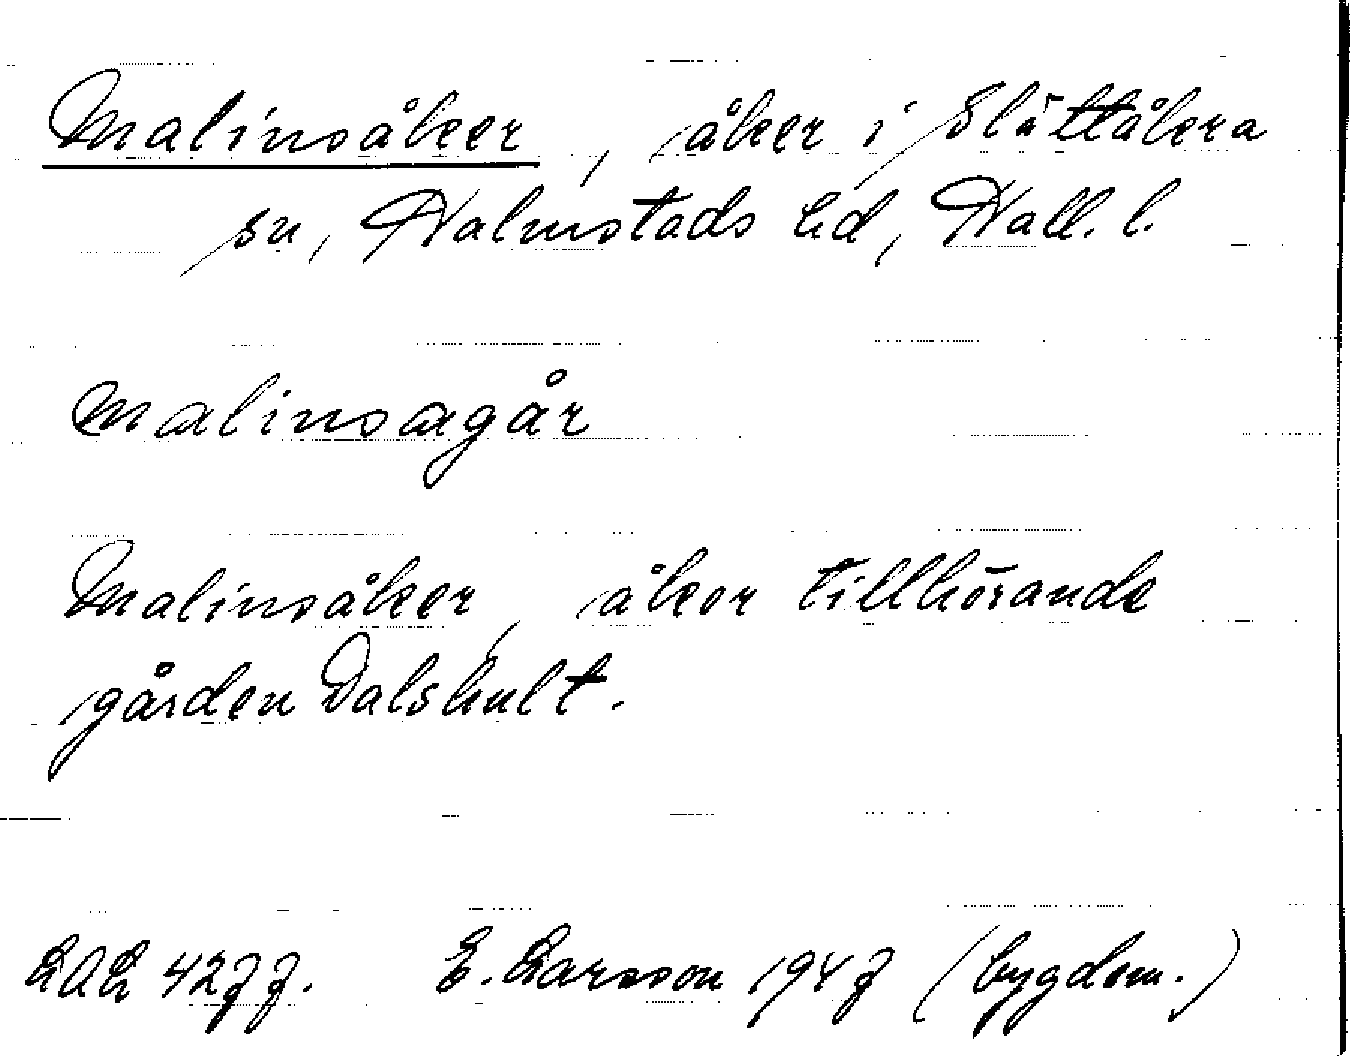 Malinsåker, åker i Slättåkra
sn, Halmstads hd, Hall. l.
Malinsagår
Malinsåker, åker tillhörande
gården Dalshult.
LAL 4277. E. Larsson 1947 (bygdem.)